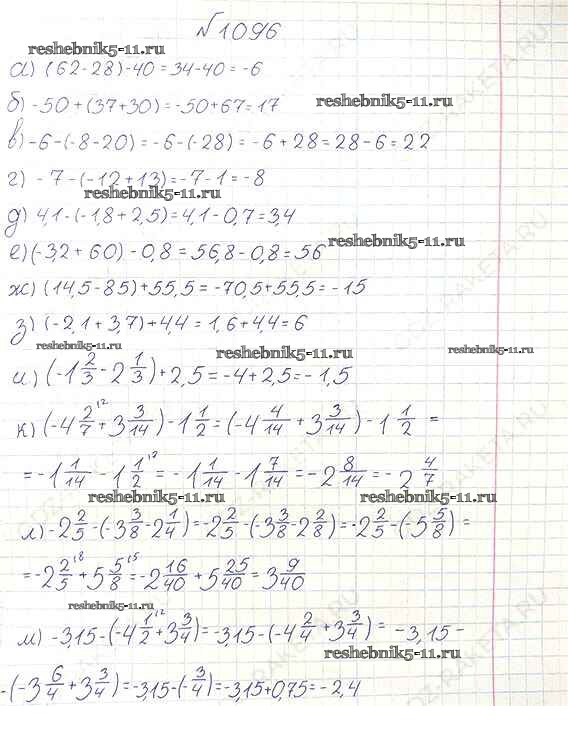 №1096
reshebnik5-11.ru
а) (62-28)-40=34-40=-6
б) -50+(37+30)=-50+67=17
reshebnik5-11.ru
в) -6-(-8-20)=-6-(-28)=-6+28=28-6=22
г) -7-(-12+13)=-7-1=-8
reshebnik5-11.ru
д) 4,1-(-1,8+2,5)=4,1-0,7=3,4
reshebnik5-11.ru
е) (-3,2+60)-0,8=56,8-0,8=56
ж) (14,5-85)+55,5=-70,5+55,5=-15
з) (-2,1+3,7)+4,4=1,6+4,4=6
reshebnik5-11.ru reshebnik5-11.ru reshebnik5-11.ru
и) (-1 2/3 - 2 1/3)+2,5=-4+2,5=-1,5
к) (-4 2/7 \2 + 3 3/14)-1 1/2=(-4 4/14 + 3 3/14)-1 1/2=
=-1 1/14 - 1 1/2 \7 =-1 1/14 - 1 7/14=-2 8/14=-2 4/7
reshebnik5-11.ru reshebnik5-11.ru
л) -2 2/5-(-3 3/8 - 2 1/4)=-2 2/5-(-3 3/8 - 2 2/8)=-2 2/5-(-5 5/8)=
=-2 2/5 \8 + 5 5/8 \5 =-2 16/40 + 5 25/40=3 9/40
reshebnik5-11.ru
м) -3,15-(-4 1/2 \2 + 3 3/4)=-3,15-(-4 2/4 + 3 3/4)= -3,15-
reshebnik5-11.ru
-(-3 6/4 + 3 3/4)=-3,15-(-3/4)=-3,15+0,75=-2,4
DZ-RAKETA.RU